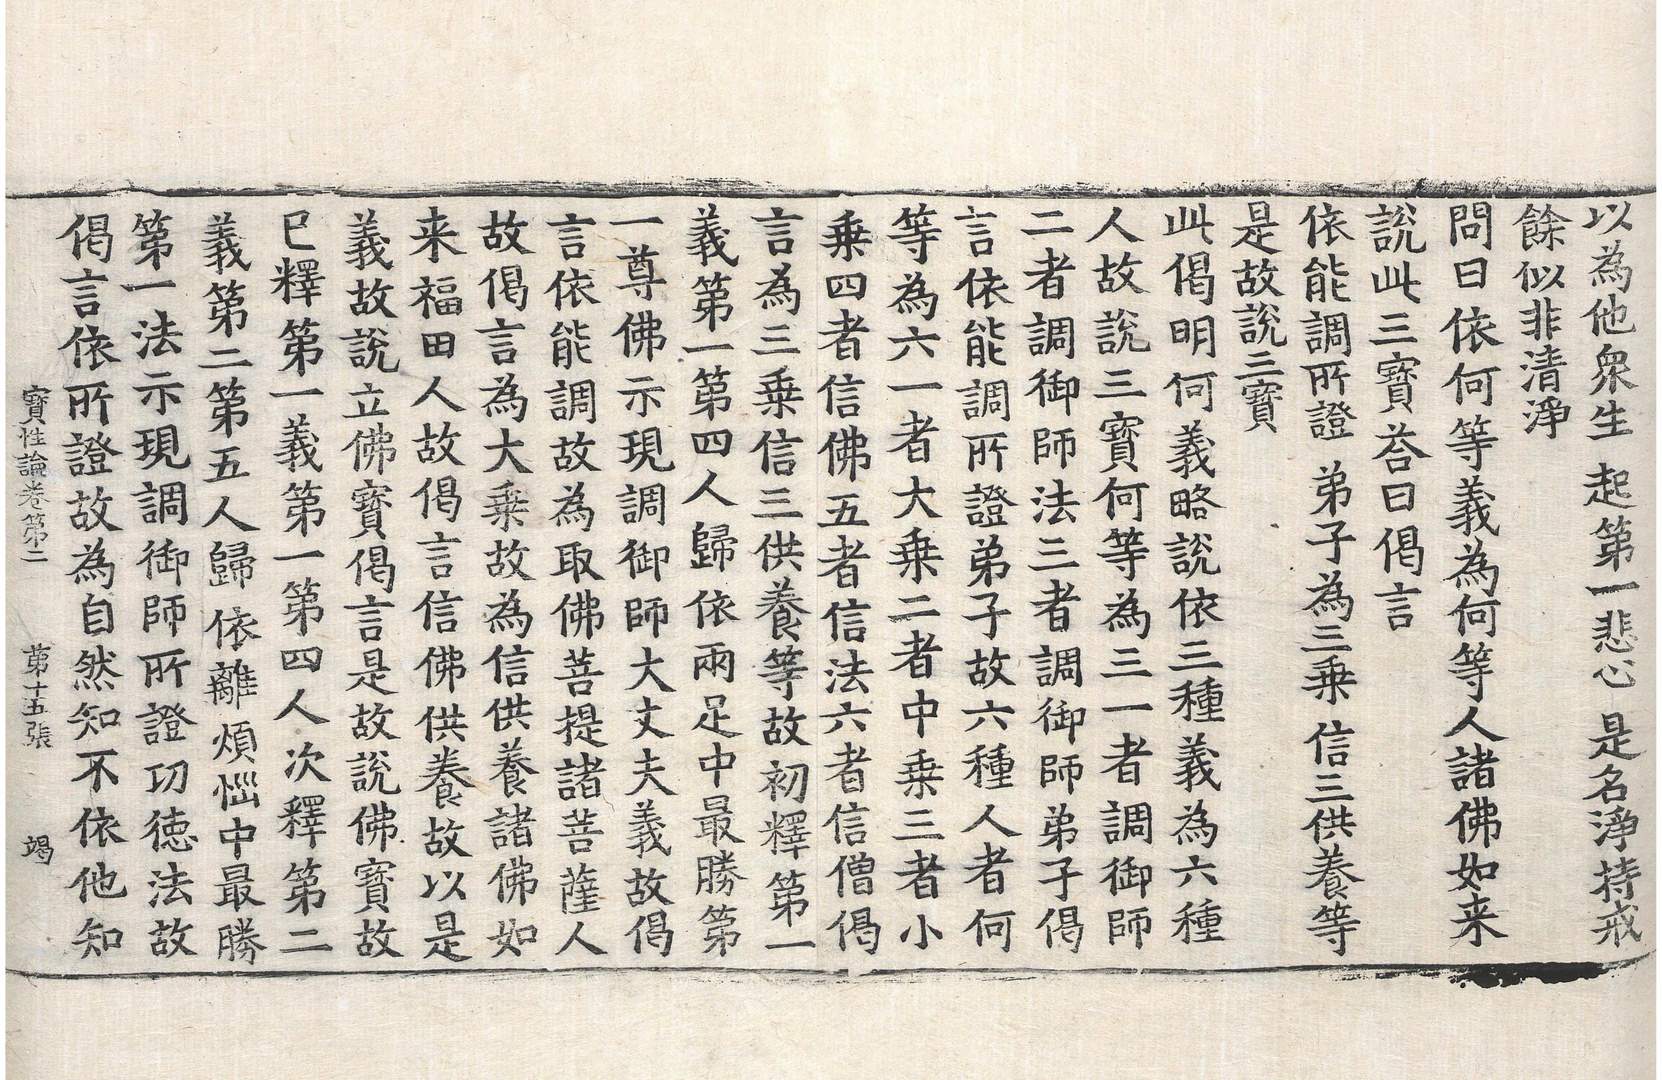 以為他衆生 起第一悲心 是名淨持戒
餘似非清淨
問曰依何等義為何等人諸佛如来
說此三寶荅曰偈言
依能調所證 弟子為三乗 信三供養等
是故說三寶
此偈明何義略說依三種義為六種
人故說三寶何等為三一者調御師
二者調御師法三者調御師弟子偈
言依能調所證弟子故六種人者何
等為六一者大乗二者中乗三者小
乗四者信佛五者信法六者信僧偈
言為三乗信三供養等故初釋第一
義第一第四人歸依兩足中最勝第
一尊佛示現調御師大丈夫義故偈
言依能調故為取佛菩提諸菩薩人
故偈言為大乗故為信供養諸佛如
来福田人故偈言信佛供養故以是
義故說立佛寶偈言是故說佛寶故
已釋第一義第一第四人次釋第二
義第二第五人歸依離煩惱中最勝
第一法示現調御師所證功徳法故
偈言依所證故為自然知不依他知
寳性論卷第二 第十五張 竭